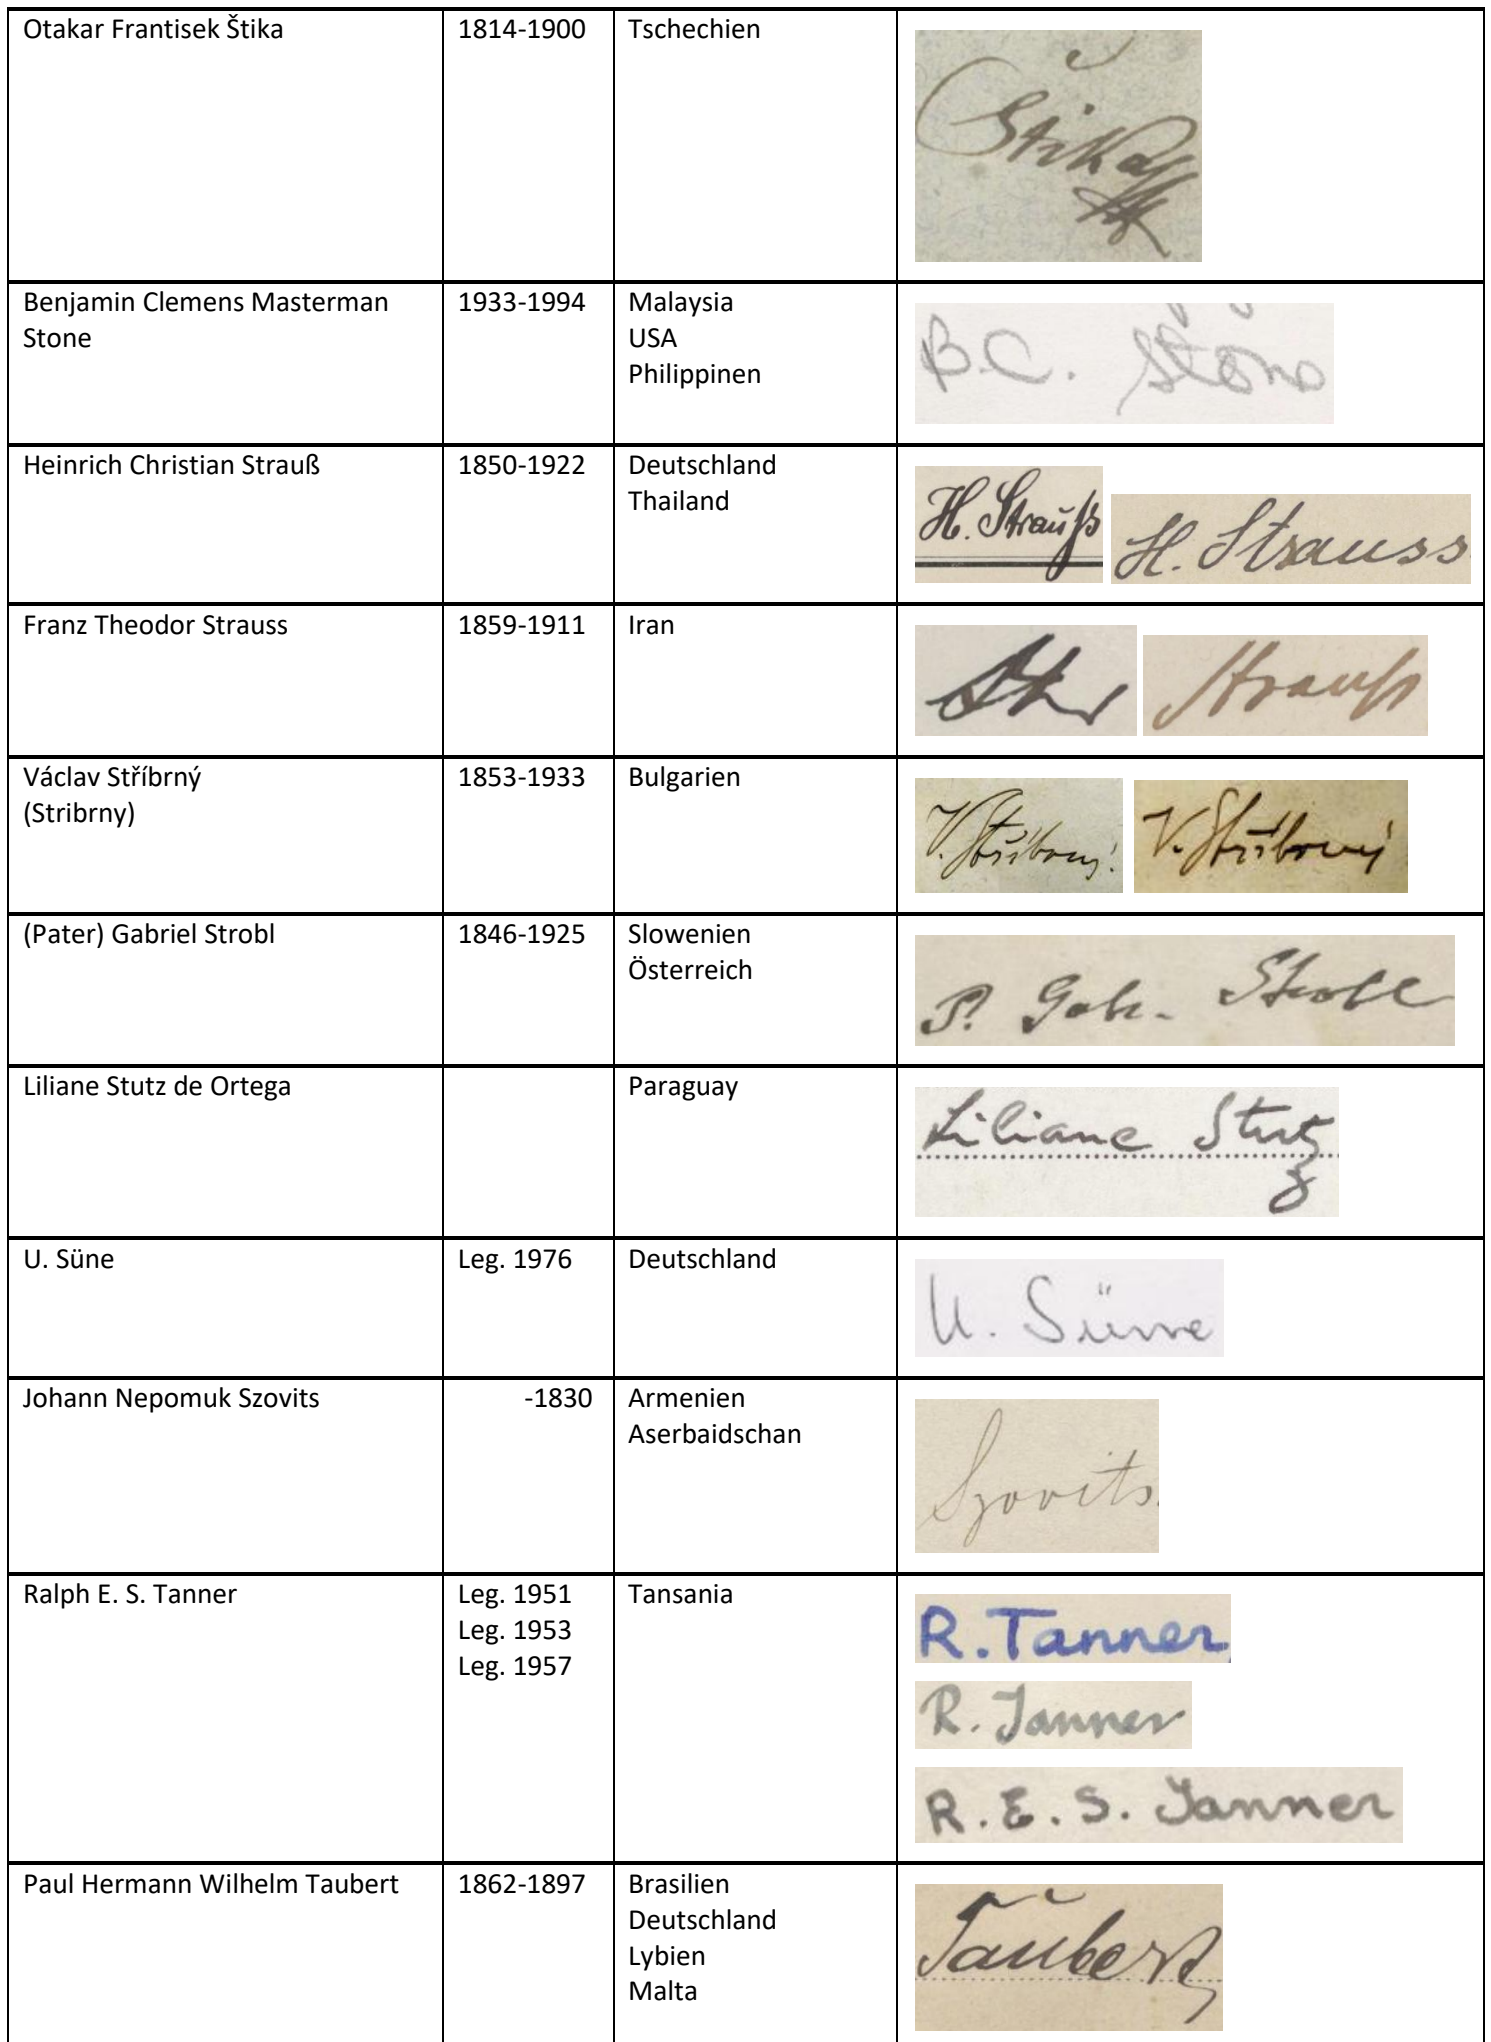 Otakar Frantisek Štika 1814-1900 Tschechien
Štika
Benjamin Clemens Masterman 1933-1994 Malaysia
Stone USA
Philippinen
B.C. Stone
Heinrich Christian Strauß 1850-1922 Deutschland
Thailand
H. Strauß H. Strauss
Franz Theodor Strauss 1859-1911 Iran
Str Strauß
Václav Stříbrný 1853-1933 Bulgarien
(Stribrny)
V. Stříbrný V. Stříbrný
(Pater) Gabriel Strobl 1846-1925 Slowenien
Österreich
P. Gab. Strobl
Liliane Stutz de Ortega Paraguay
Liliane Stutz
U. Süne Leg. 1976 Deutschland
U. Süne
Johann Nepomuk Szovits -1830 Armenien
Aserbaidschan
Szovits
Ralph E. S. Tanner Leg. 1951 Tansania
Leg. 1953
Leg. 1957
R. Tanner
R. Tanner
R. E. S. Tanner
Paul Hermann Wilhelm Taubert 1862-1897 Brasilien
Deutschland
Lybien
Malta
Taubert